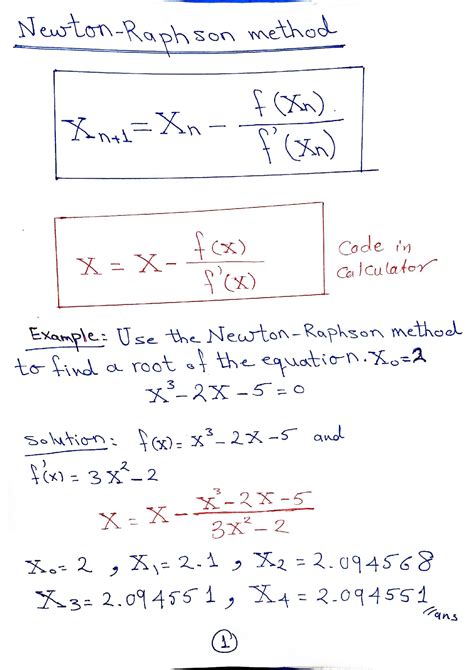 Newton-Raphson method
Xn+1 = Xn - f(Xn) / f'(Xn)
X = X - f(x) / f'(x)
Code in
Calculator
Example: Use the Newton-Raphson method
to find a root of the equation. X₀=2
x³-2x-5=0
Solution: f(x)= x³-2x-5 and
f'(x) = 3x²-2
X = X - x³-2x-5 / 3x²-2
X₀=2, X₁=2.1, X₂=2.094568
X₃=2.094551, X₄=2.094551
//ans
1